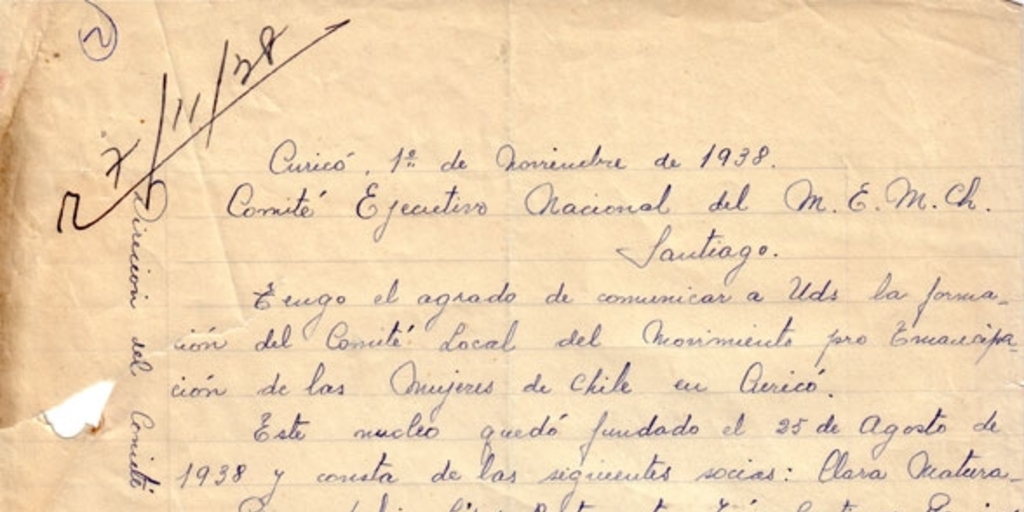 2
27/11/38
Curicó, 1º de Noviembre de 1938.
Comité Ejecutivo Nacional del M. E. M. Ch.
Santiago.
Tengo el agrado de comunicar a Uds la forma-
ción del Comité Local del Movimiento pro Emancipa-
ción de las Mujeres de Chile en Curicó.
Este nucleo quedó fundado el 25 de Agosto de
1938 y consta de las siguientes socias: Clara Matura-
Direccion del Comité